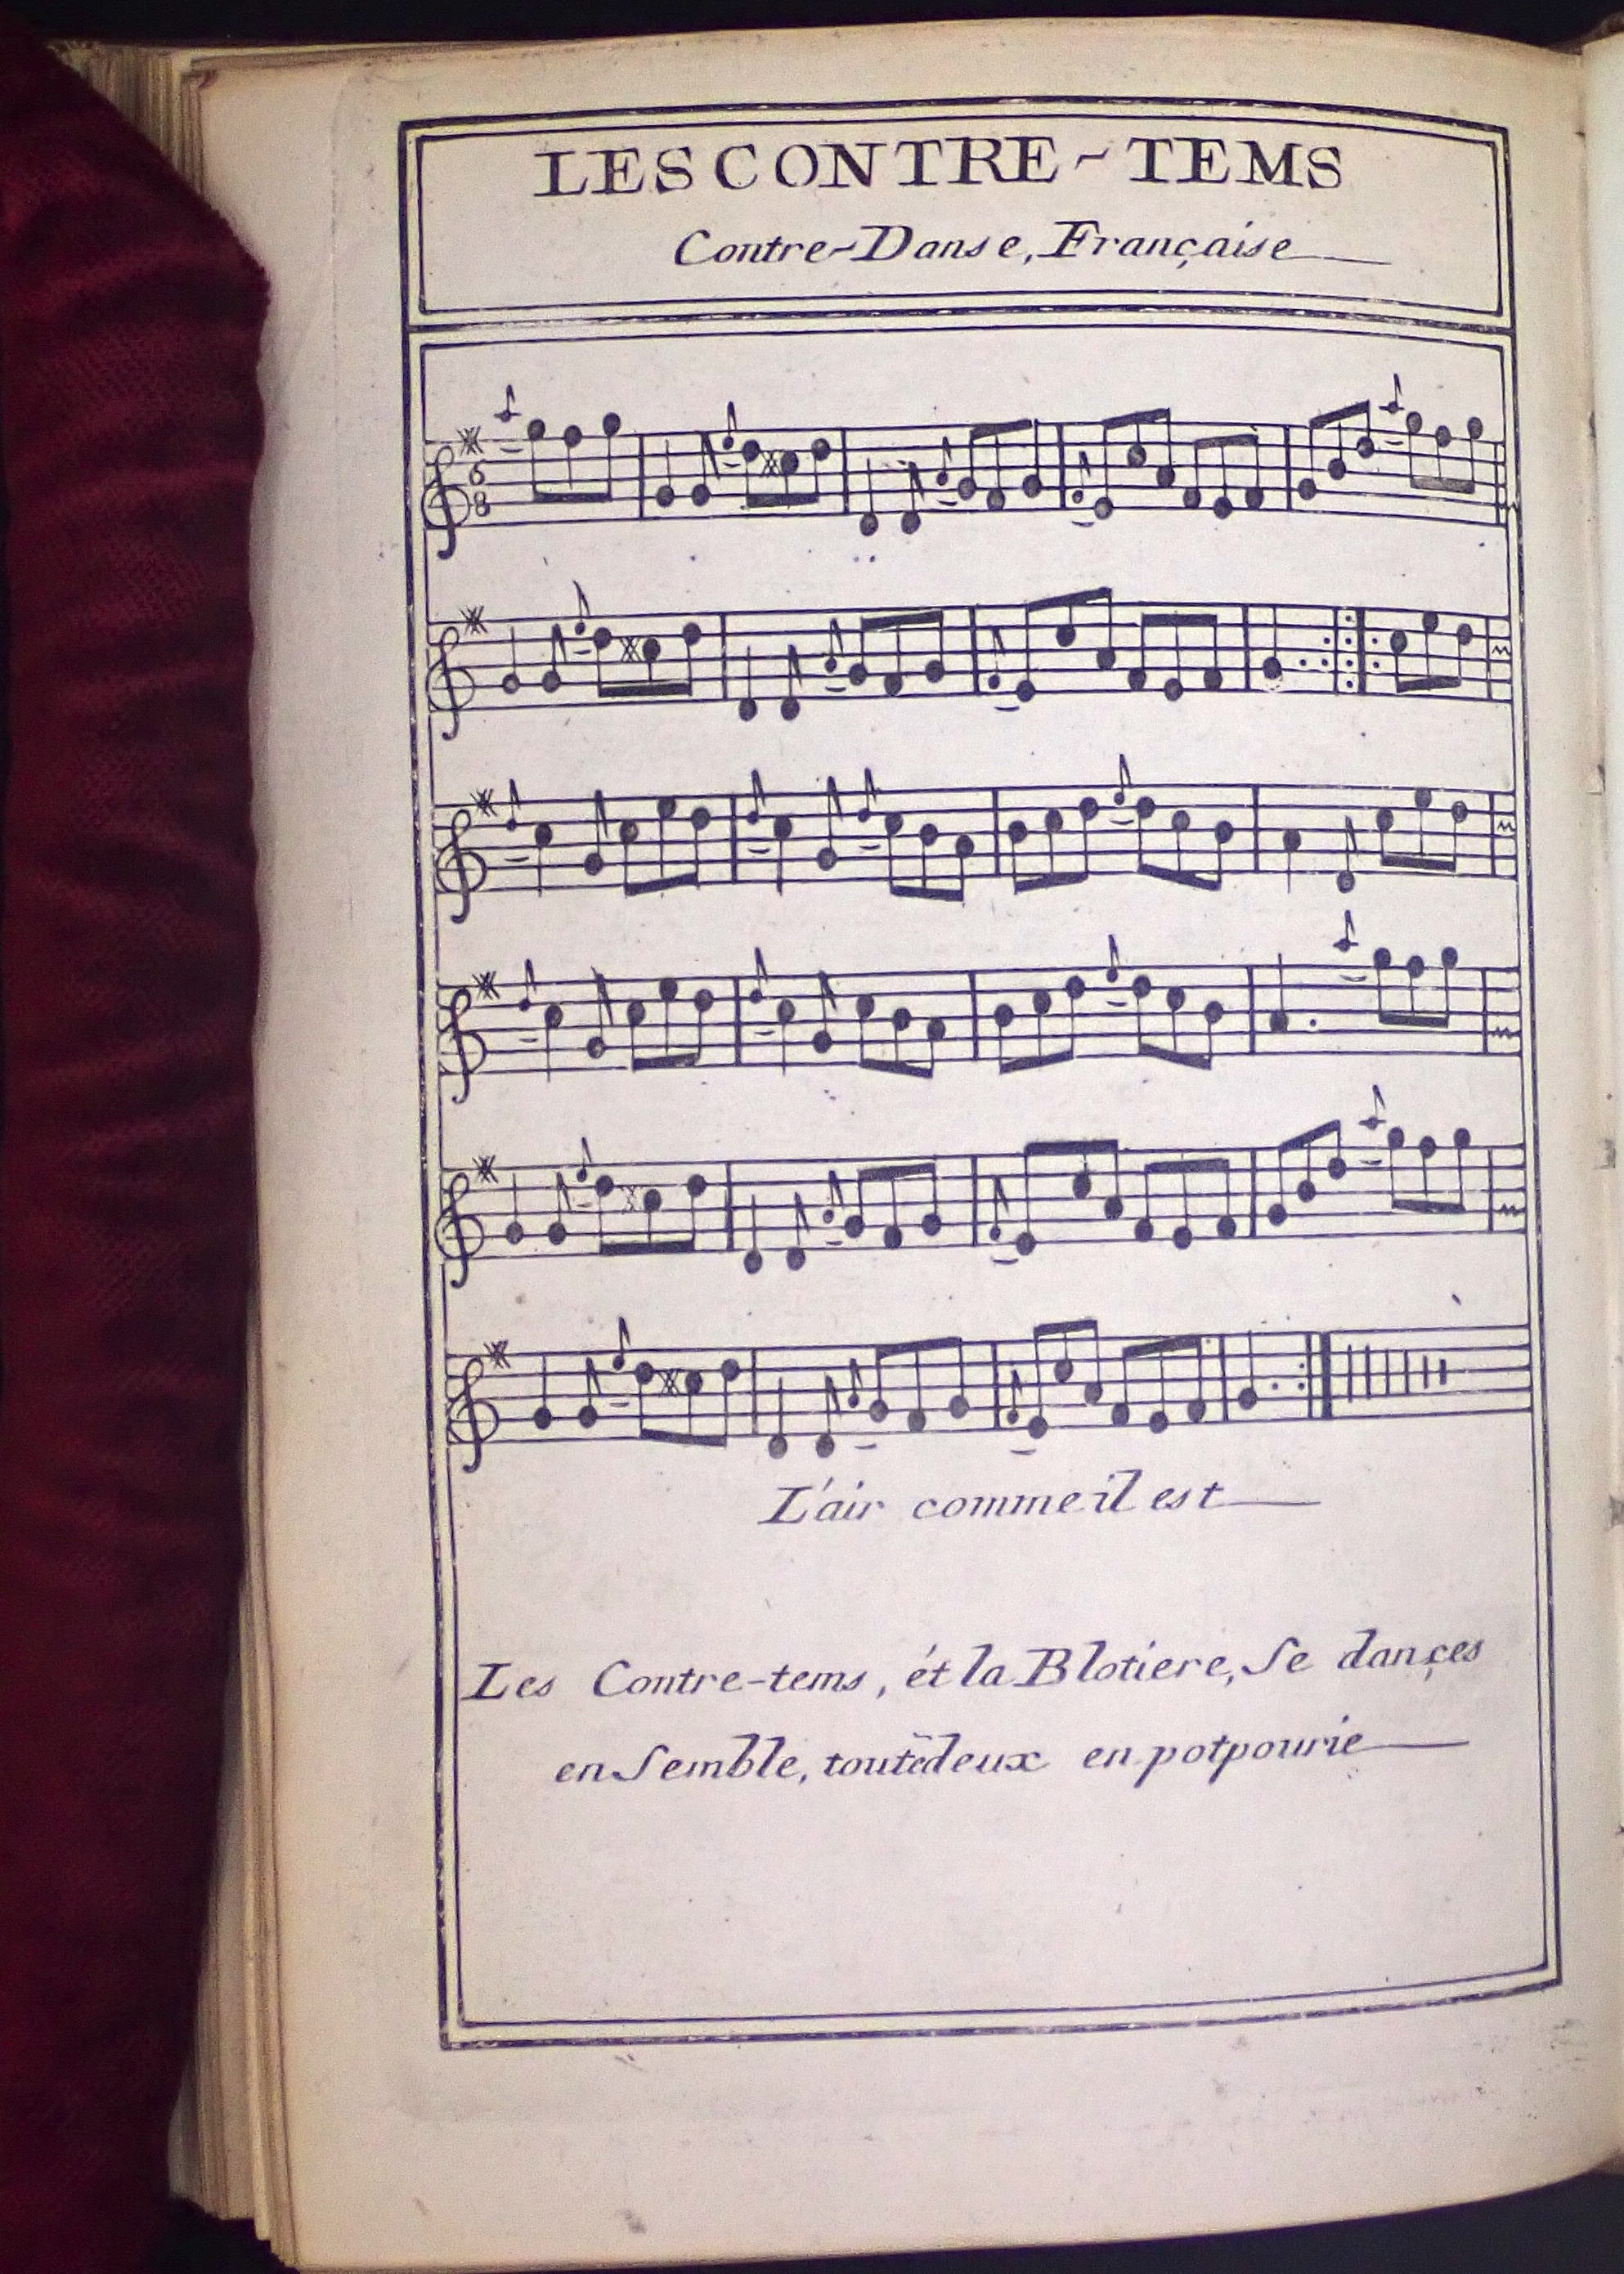 LES CONTRE-TEMS
Contre-Danse, Française
6
8
L'air comme il est
Les Contre-tems, ét la Blotiere, Se dançes
en Semble, toutēdeux en potpourie